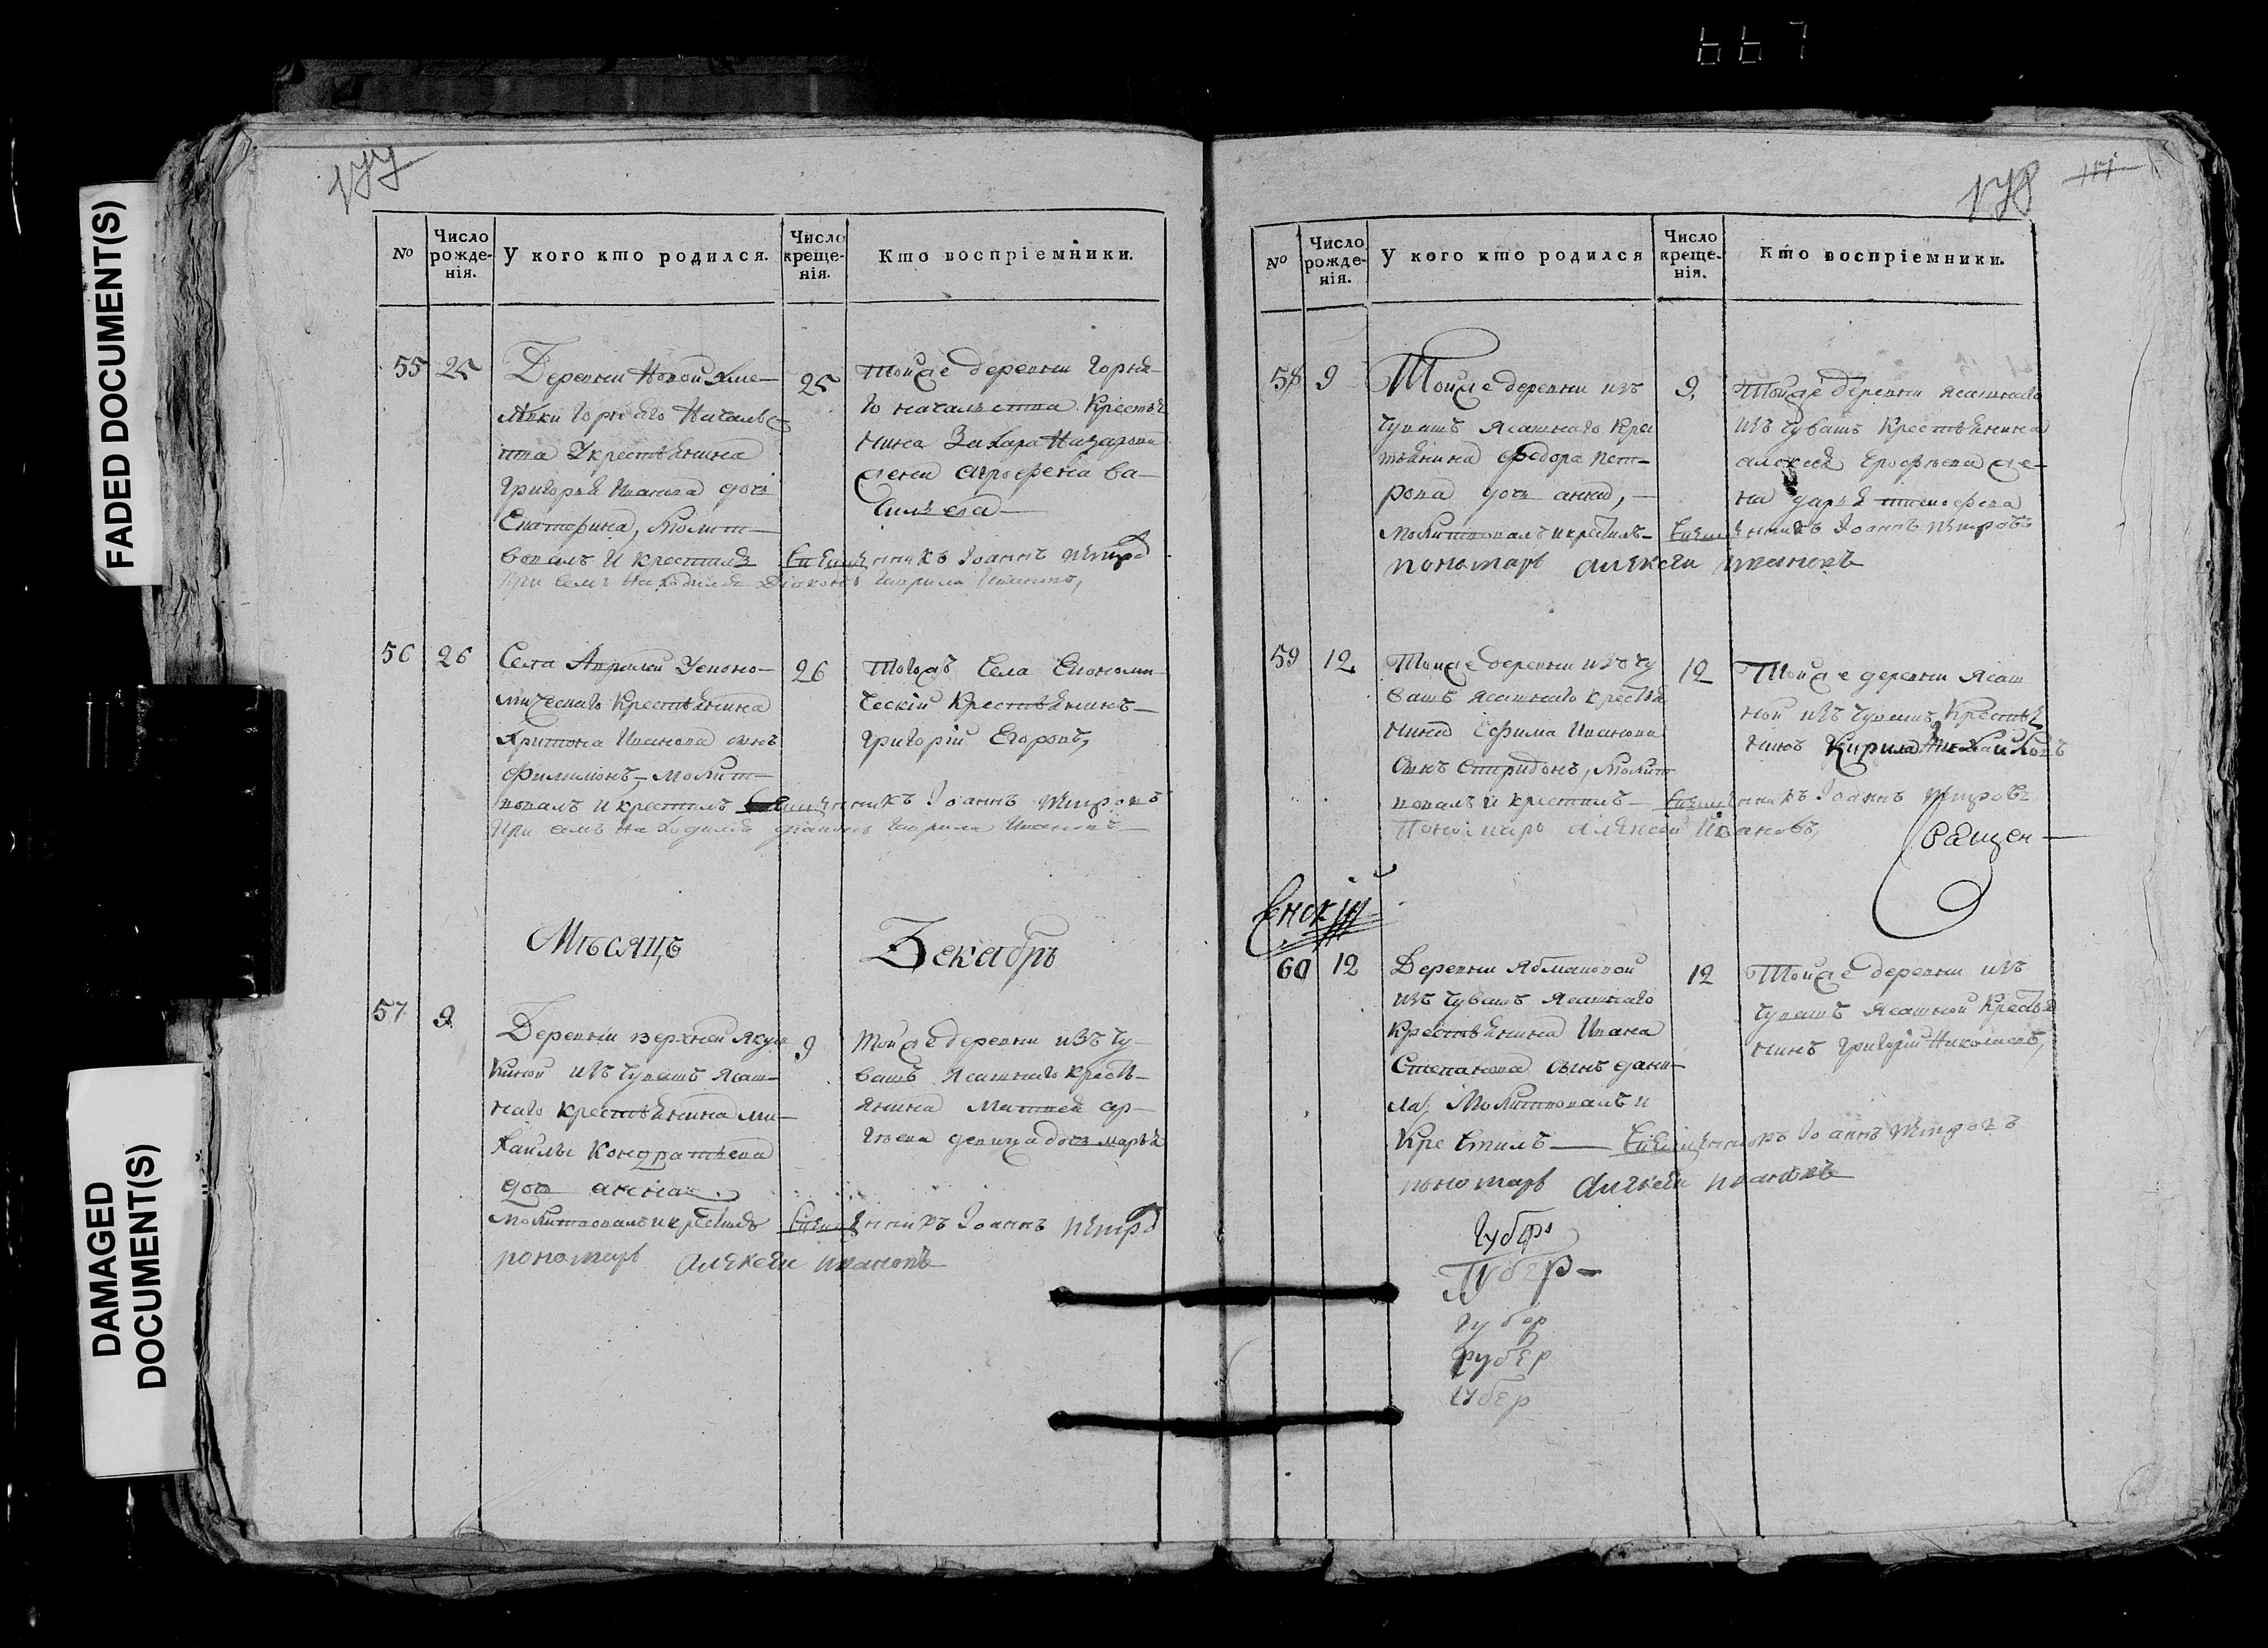 667
FADED DOCUMENT(S)
DAMAGED
DOCUMENT(S)
177
№
Число рожде-нія.
У кого кто родился.
Число креще-нія.
Кто воспріемники.
55 25
Деревни Новой Хме-
левки Горняго Начальс
тва Укрестьянина
Григорья Иванова дочь
Екатерина, Молит-
вовалъ и крестилъ Священникъ Іоаннъ Петро
При семъ Находился Діяконъ Гаврила Ивановъ,
25
Тойже деревни Горня-
го начальства Крестья
нина Захара Назарова
жена Агрофена Ва-
сильева
56 26
Села Аврали Уеконо-
мическаго Крестьянина
Аритона Иванова сынъ
Филимонъ, молит-
вовалъ и крестилъ Священникъ Іоаннъ Петровъ
При семъ находился діаконъ Гаврила Ивановъ
26
Тогожъ Села Економи-
ческій Крестьянинъ
Григорій Егоровъ,
Мѣсяцъ Декабрь
57 9
Деревни верхней Якуш
киной изъ Чувашъ Ясаш-
наго крестьянина Ми-
хайлы Кондратьева
дочь анна
Молитвовалъ и крестилъ Священникъ Іоаннъ Петро
пономарь Алексей Ивановъ
9
Тойже деревни изъ Чу-
вашъ Ясашнаго Кресть-
янина Матвея
девица дочь марья
178
№
Число рожде-нія.
У кого кто родился
Число креще-нія.
Кто воспріемники.
58 9
Тойже деревни изъ
Чувашъ Ясашнаго Кре
тьянина Федора Пет-
рова дочь анна,
Молитвовалъ и крестилъ Священникъ Іоаннъ Петровъ
пономарь Алексеи Ивановъ
9
Тойже деревни Ясашнаго
изъ Чувашъ Крестьянина
алексея Ерофеева же-
на дарья тимофеева
59 12
Тойже деревни изъ Чу
вашъ Ясашнаго кресть
нина Ефима Иванова
Сынъ Спиридонъ, Молит
вовалъ и крестилъ Священникъ Іоаннъ Петровъ
Пономарь Алексей Ивановъ,
12
Тойже деревни Ясаш
ной изъ Чувашъ Крестья
нинъ Кирила Михайловъ
Священ-
енскій
60 12
Деревни Абмановой
изъ Чувашъ Ясашнаго
Крестьянина Ивана
Степанова сынъ Дани-
ла, Молитвовалъ и
Крестилъ Священникъ Іоаннъ Петровъ
пономарь Алексеи Ивановъ
12
Тойже деревни изъ
Чувашъ Ясашной Кресья
нинъ Григорій Николаевъ,
Губер
Губер-
Губер
Губер
Губер